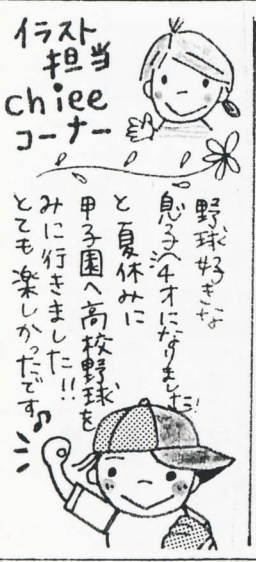 イラスト
担当
chiee
コーナー
野球好きな
息子(4才になりました!)
と夏休みに
甲子園へ高校野球を
みに行きました!!
とても楽しかったです♪